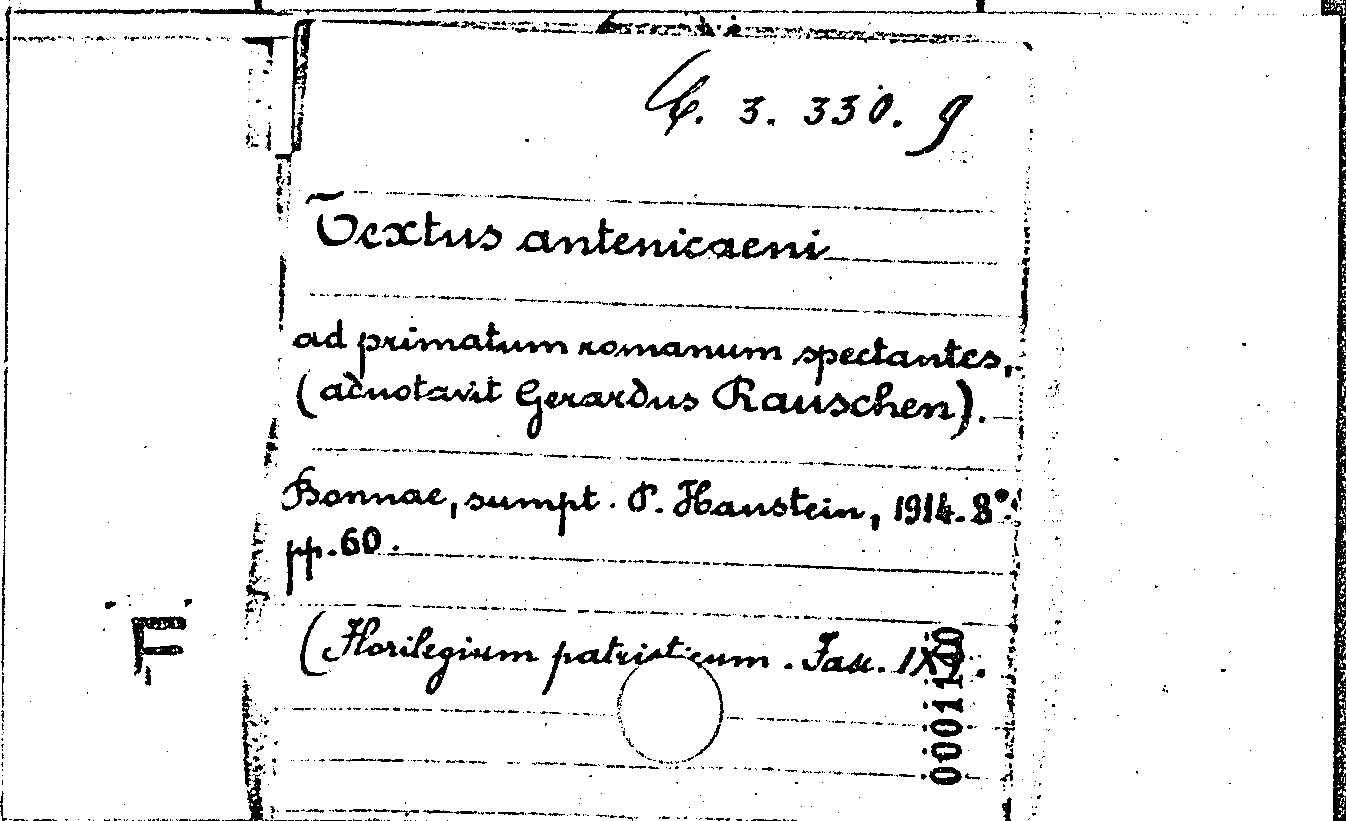 C. 3. 330. g
Textus antenicaeni
ad primatum romanum spectantes,
(adnotavit Gerardus Rauschen).
Bonnae, sumpt. P. Hanstein, 1914. 8°.
pp. 60.
(Florilegium patristicum. Fasc. IX).
F
0001110